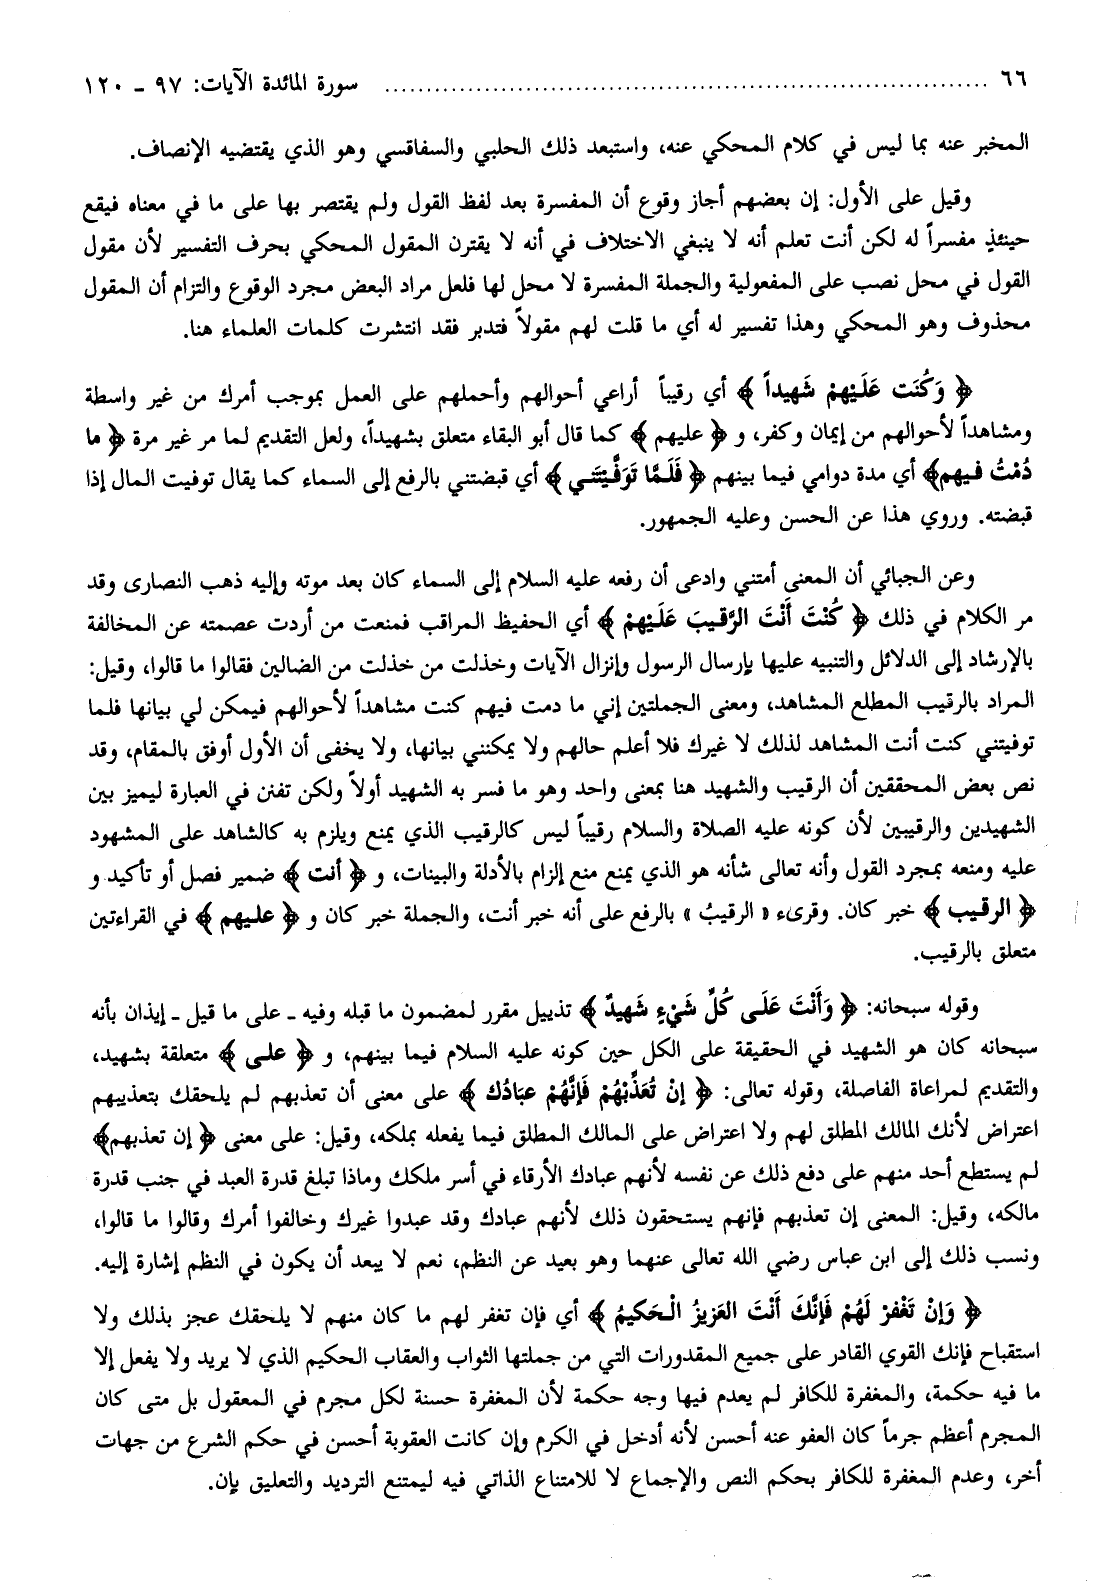 ٦٦ ........................................................................... سورة المائدة الآيات: ٩٧ ـ ١٢٠
المخبر عنه بما ليس في كلام المحكي عنه، واستبعد ذلك الحلبي والسفاقسي وهو الذي يقتضيه الإنصاف.
وقيل على الأول: إن بعضهم أجاز وقوع أن المفسرة بعد لفظ القول ولم يقتصر بها على ما في معناه فيقع
حينئذٍ مفسراً له لكن أنت تعلم أنه لا ينبغي الاختلاف في أنه لا يقترن المقول المحكي بحرف التفسير لأن مقول
القول في محل نصب على المفعولية والجملة المفسرة لا محل لها فلعل مراد البعض مجرد الوقوع والتزام أن المقول
محذوف وهو المحكي وهذا تفسير له أي ما قلت لهم مقولاً فتدبر فقد انتشرت كلمات العلماء هنا.
﴿ وَكُنَت عَلَيْهِمْ شَهيداً ﴾ أي رقيباً أراعي أحوالهم وأحملهم على العمل بموجب أمرك من غير واسطة
ومشاهداً لأحوالهم من إيمان وكفر، و ﴿ عليهم ﴾ كما قال أبو البقاء متعلق بشهيداً، ولعل التقديم لما مر غير مرة ﴿ ما
دُمْتُ فـيهم﴾ أي مدة دوامي فيما بينهم ﴿ فَلَـمَّا تَوَفَّـيْتَنـي ﴾ أي قبضتني بالرفع إلى السماء كما يقال توفيت المال إذا
قبضته. وروي هذا عن الحسن وعليه الجمهور.
وعن الجبائي أن المعنى أمتني وادعى أن رفعه عليه السلام إلى السماء كان بعد موته وإليه ذهب النصارى وقد
مر الكلام في ذلك ﴿ كُنْتَ أَنْتَ الرَّقـيبَ عَلَـيْهِمْ ﴾ أي الحفيظ المراقب فمنعت من أردت عصمته عن المخالفة
بالإرشاد إلى الدلائل والتنبيه عليها بإرسال الرسول وإنزال الآيات وخذلت من خذلت من الضالين فقالوا ما قالوا، وقيل:
المراد بالرقيب المطلع المشاهد، ومعنى الجملتين إني ما دمت فيهم كنت مشاهداً لأحوالهم فيمكن لي بيانها فلما
توفيتني كنت أنت المشاهد لذلك لا غيرك فلا أعلم حالهم ولا يمكنني بيانها، ولا يخفى أن الأول أوفق بالمقام، وقد
نص بعض المحققين أن الرقيب والشهيد هنا بمعنى واحد وهو ما فسر به الشهيد أولاً ولكن تفنن في العبارة ليميز بين
الشهيدين والرقيبين لأن كونه عليه الصلاة والسلام رقيباً ليس كالرقيب الذي يمنع ويلزم به كالشاهد على المشهود
عليه ومنعه بمجرد القول وأنه تعالى شأنه هو الذي يمنع منع إلزام بالأدلة والبينات، و ﴿ أنت ﴾ ضمير فصل أو تأكيد و
﴿ الرقـيب ﴾ خبر كان. وقرىء « الرقيبُ » بالرفع على أنه خبر أنت، والجملة خبر كان و ﴿ علـيهم ﴾ في القراءتين
متعلق بالرقيب.
وقوله سبحانه: ﴿ وَأَنْتَ عَلَـى كُلِّ شَيْءٍ شَهِيدٌ ﴾ تذييل مقرر لمضمون ما قبله وفيه ـ على ما قيل ـ إيذان بأنه
سبحانه كان هو الشهيد في الحقيقة على الكل حين كونه عليه السلام فيما بينهم، و ﴿ على ﴾ متعلقة بشهيد،
والتقديم لمراعاة الفاصلة، وقوله تعالى: ﴿ إنْ تُعَذِّبْهُمْ فَإنَّهُمْ عبَادُك ﴾ على معنى أن تعذبهم لم يلحقك بتعذيبهم
اعتراض لأنك المالك المطلق لهم ولا اعتراض على المالك المطلق فيما يفعله بملكه، وقيل: على معنى ﴿ إن تعذبهم﴾
لم يستطع أحد منهم على دفع ذلك عن نفسه لأنهم عبادك الأرقاء في أسر ملكك وماذا تبلغ قدرة العبد في جنب قدرة
مالكه، وقيل: المعنى إن تعذبهم فإنهم يستحقون ذلك لأنهم عبادك وقد عبدوا غيرك وخالفوا أمرك وقالوا ما قالوا،
ونسب ذلك إلى ابن عباس رضي الله تعالى عنهما وهو بعيد عن النظم، نعم لا يبعد أن يكون في النظم إشارة إليه.
﴿ وَإنْ تَغْفرْ لَهُمْ فَإنَّكَ أَنْتَ العَزيزُ الْـحَكيمُ ﴾ أي فإن تغفر لهم ما كان منهم لا يلحقك عجز بذلك ولا
استقباح فإنك القوي القادر على جميع المقدورات التي من جملتها الثواب والعقاب الحكيم الذي لا يريد ولا يفعل إلا
ما فيه حكمة، والمغفرة للكافر لم يعدم فيها وجه حكمة لأن المغفرة حسنة لكل مجرم في المعقول بل متى كان
المجرم أعظم جرماً كان العفو عنه أحسن لأنه أدخل في الكرم وإن كانت العقوبة أحسن في حكم الشرع من جهات
أخر، وعدم المغفرة للكافر بحكم النص والإجماع لا للامتناع الذاتي فيه ليمتنع الترديد والتعليق بإن.